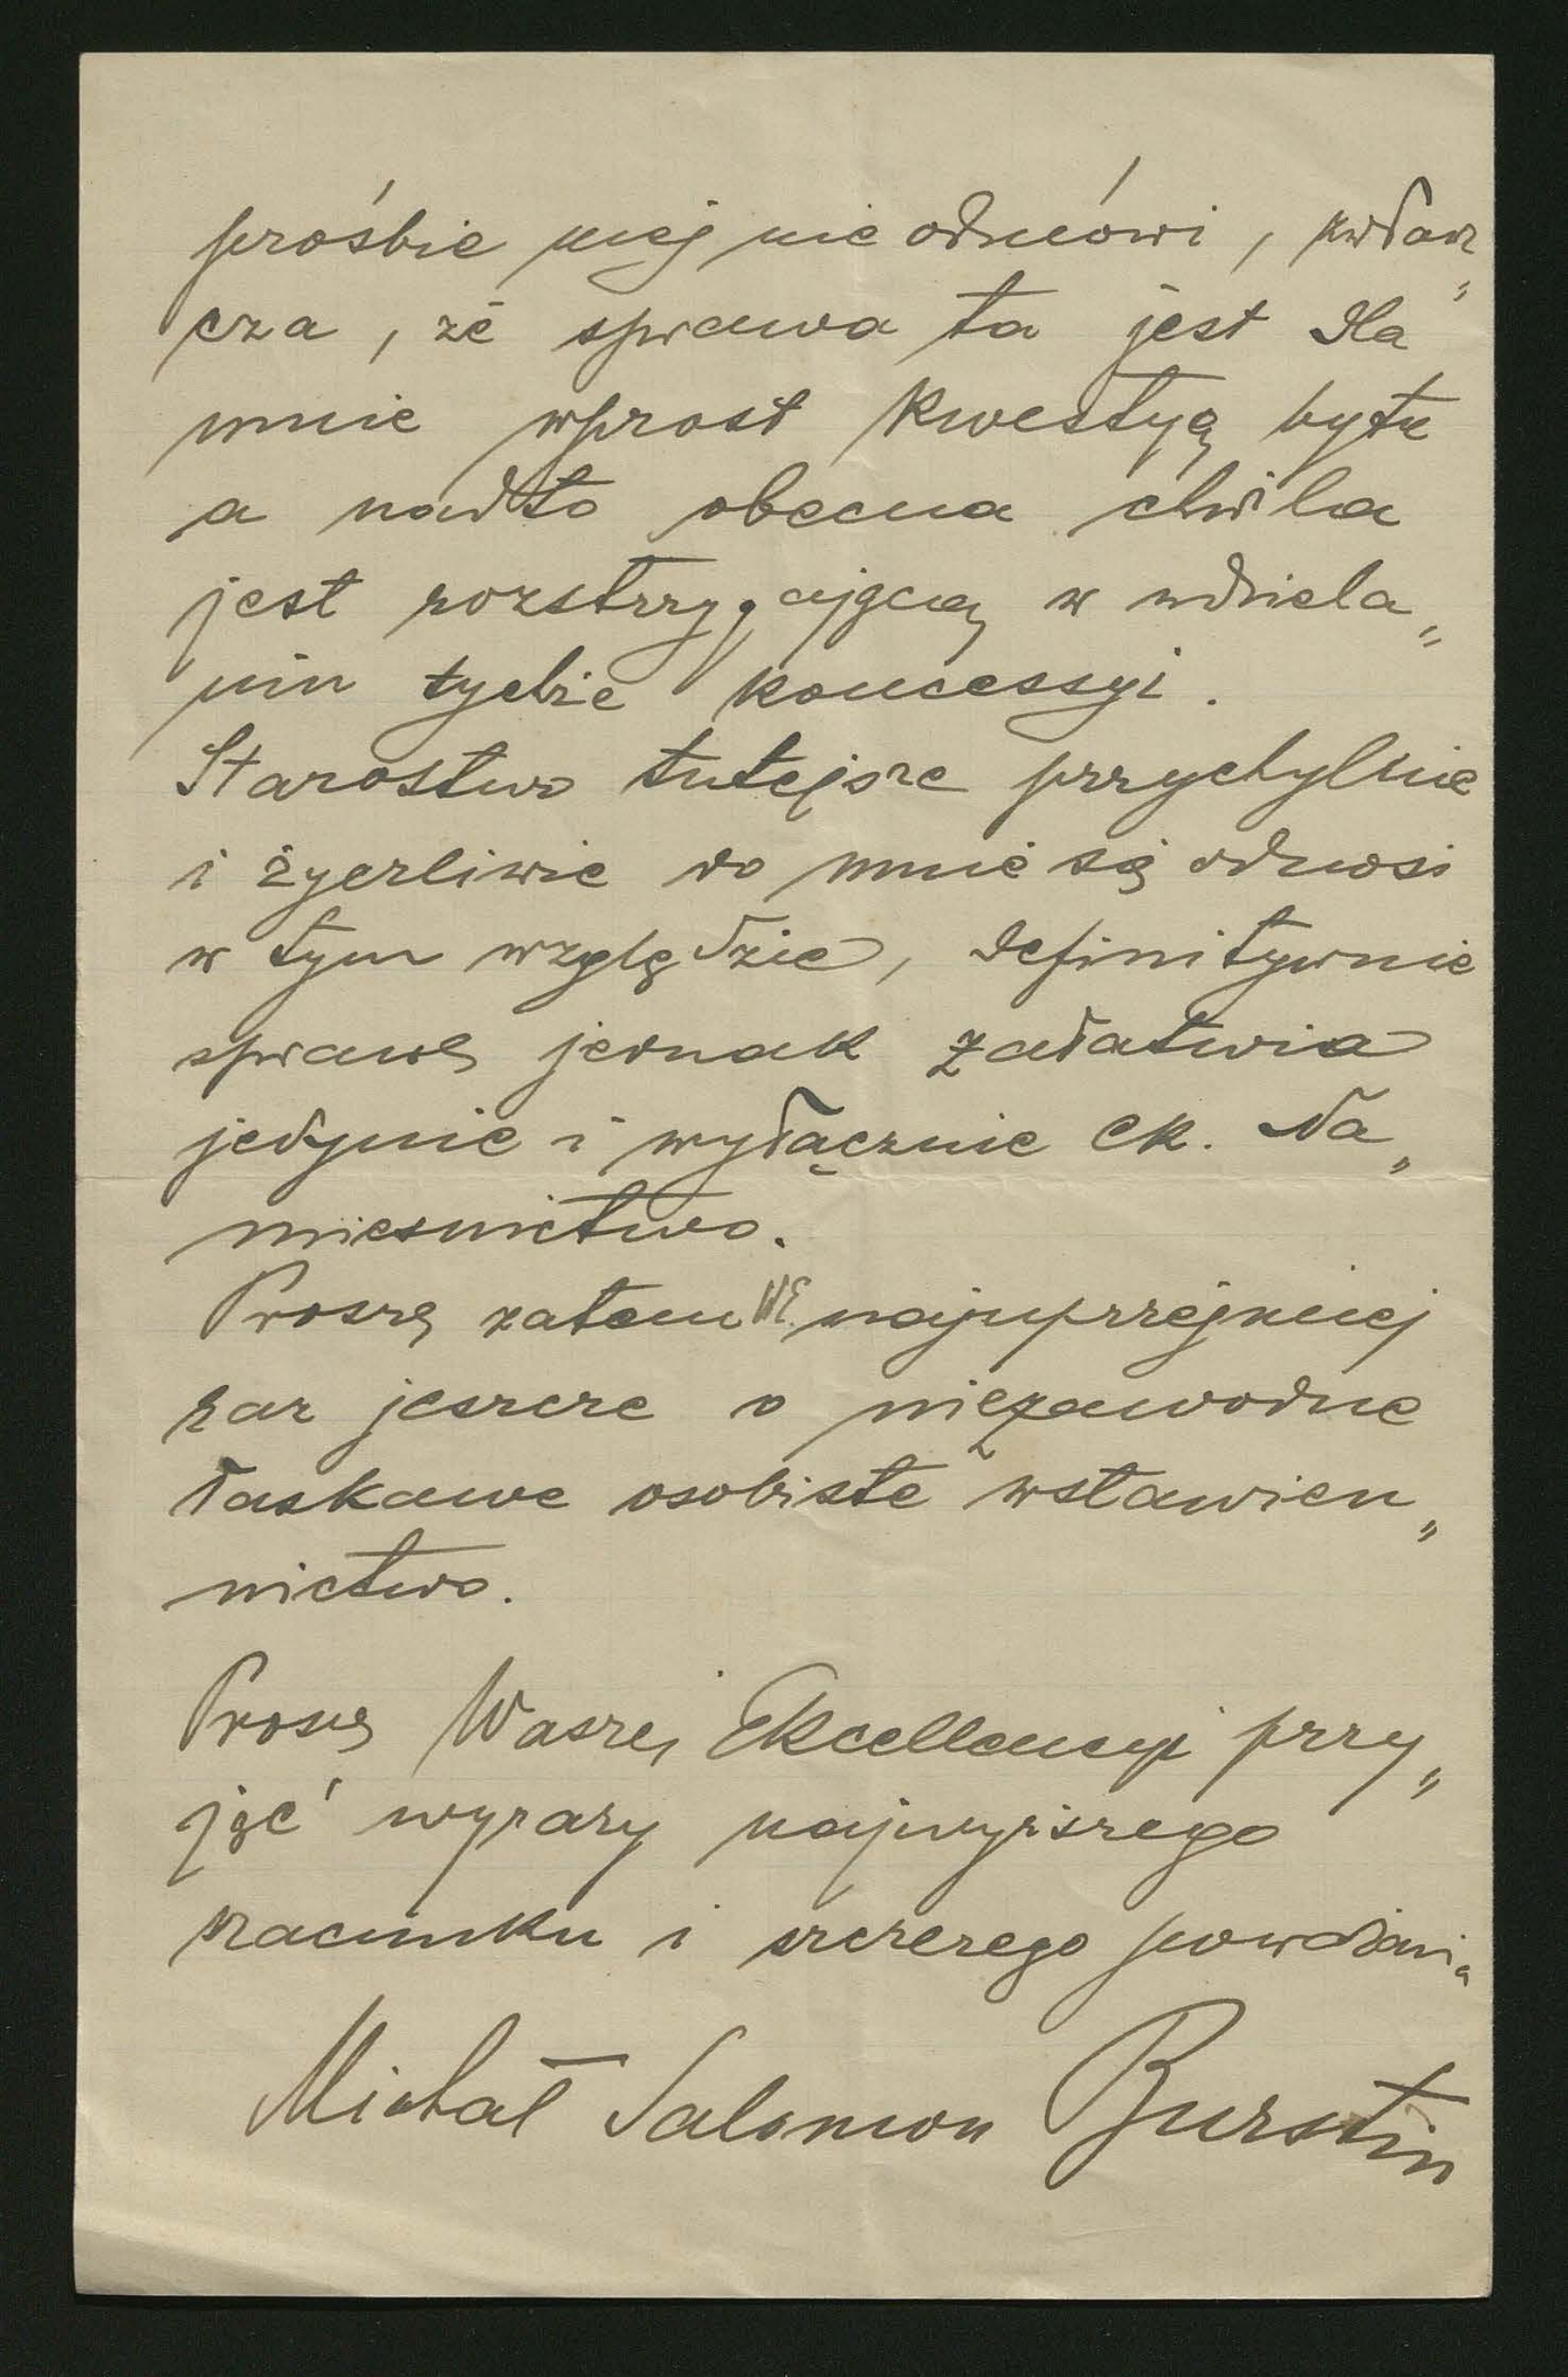 prośbie mej nie odmówi, zwłasz„
cza, że sprawa ta jest dla
mnie wprost kwestyą bytu
a nadto obecna chwila
jest rozstrzygającą w udziela„
niu tychże koncessyi.
Starostwo tutejsze przychylnie
i życzliwie do mnie się odnosi
w tym względzie, definitywnie
sprawę jednak załatwia
jedynie i wyłącznie ck. Na„
miesnictwo.
Proszę zatem WE. najuprzejmiej
raz jeszcze o niezawodne
łaskawe osobiste wstawien„
nictwo.
Proszę Waszej Ekcellencyi przy„
jąć wyrazy najwyższego
szacunku i szczerego poważania
Michał Salomon Burstin